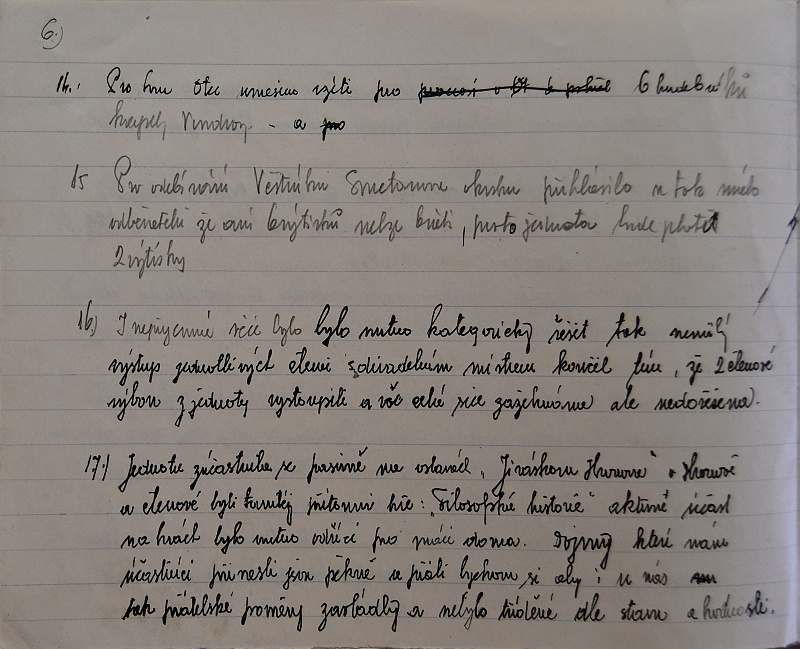 6.)
14. Pro hru Otec umíme vzíti pro 6 hudebníků
kapely Vondrov - a pro
15 Pro odebírání Věstníku Smetanova okrsku přihlásilo se tak málo
odběratelů že ani výtisků nelze bráti, proto jednota bude platit
2 výtisky
16) I nepříjemné věci bylo bylo nutno kategoricky řešit tak nemilý
výstup jednotlivých členů s divadelním mistrem končil tím, že 2 členové
výboru z jednoty vystoupili a věc celá sice zažehnána ale nedořešena.
17.) Jednota zúčastnila se pasivně na oslavách „Jiráskova Hronova" v Hronově
a členové byli tamtéj přítomni hře: „Filosofské historie" aktivně účast
na hrách bylo nutno odříci pro práci doma. Dojmy které nám
účastníci přinesli jsou pěkné a přáli bychom si aby i u nás
tak přátelské poměry zavládly a nebylo tříděné dle stavu a hodnosti.